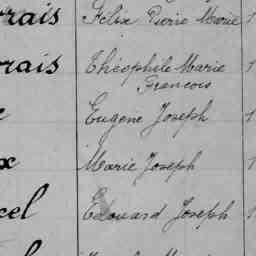 rais Félix Pierre Marie 1
rais Théophile Marie 1
François
Eugène Joseph 1
x Marie Joseph 1
cel Edouard Joseph 1